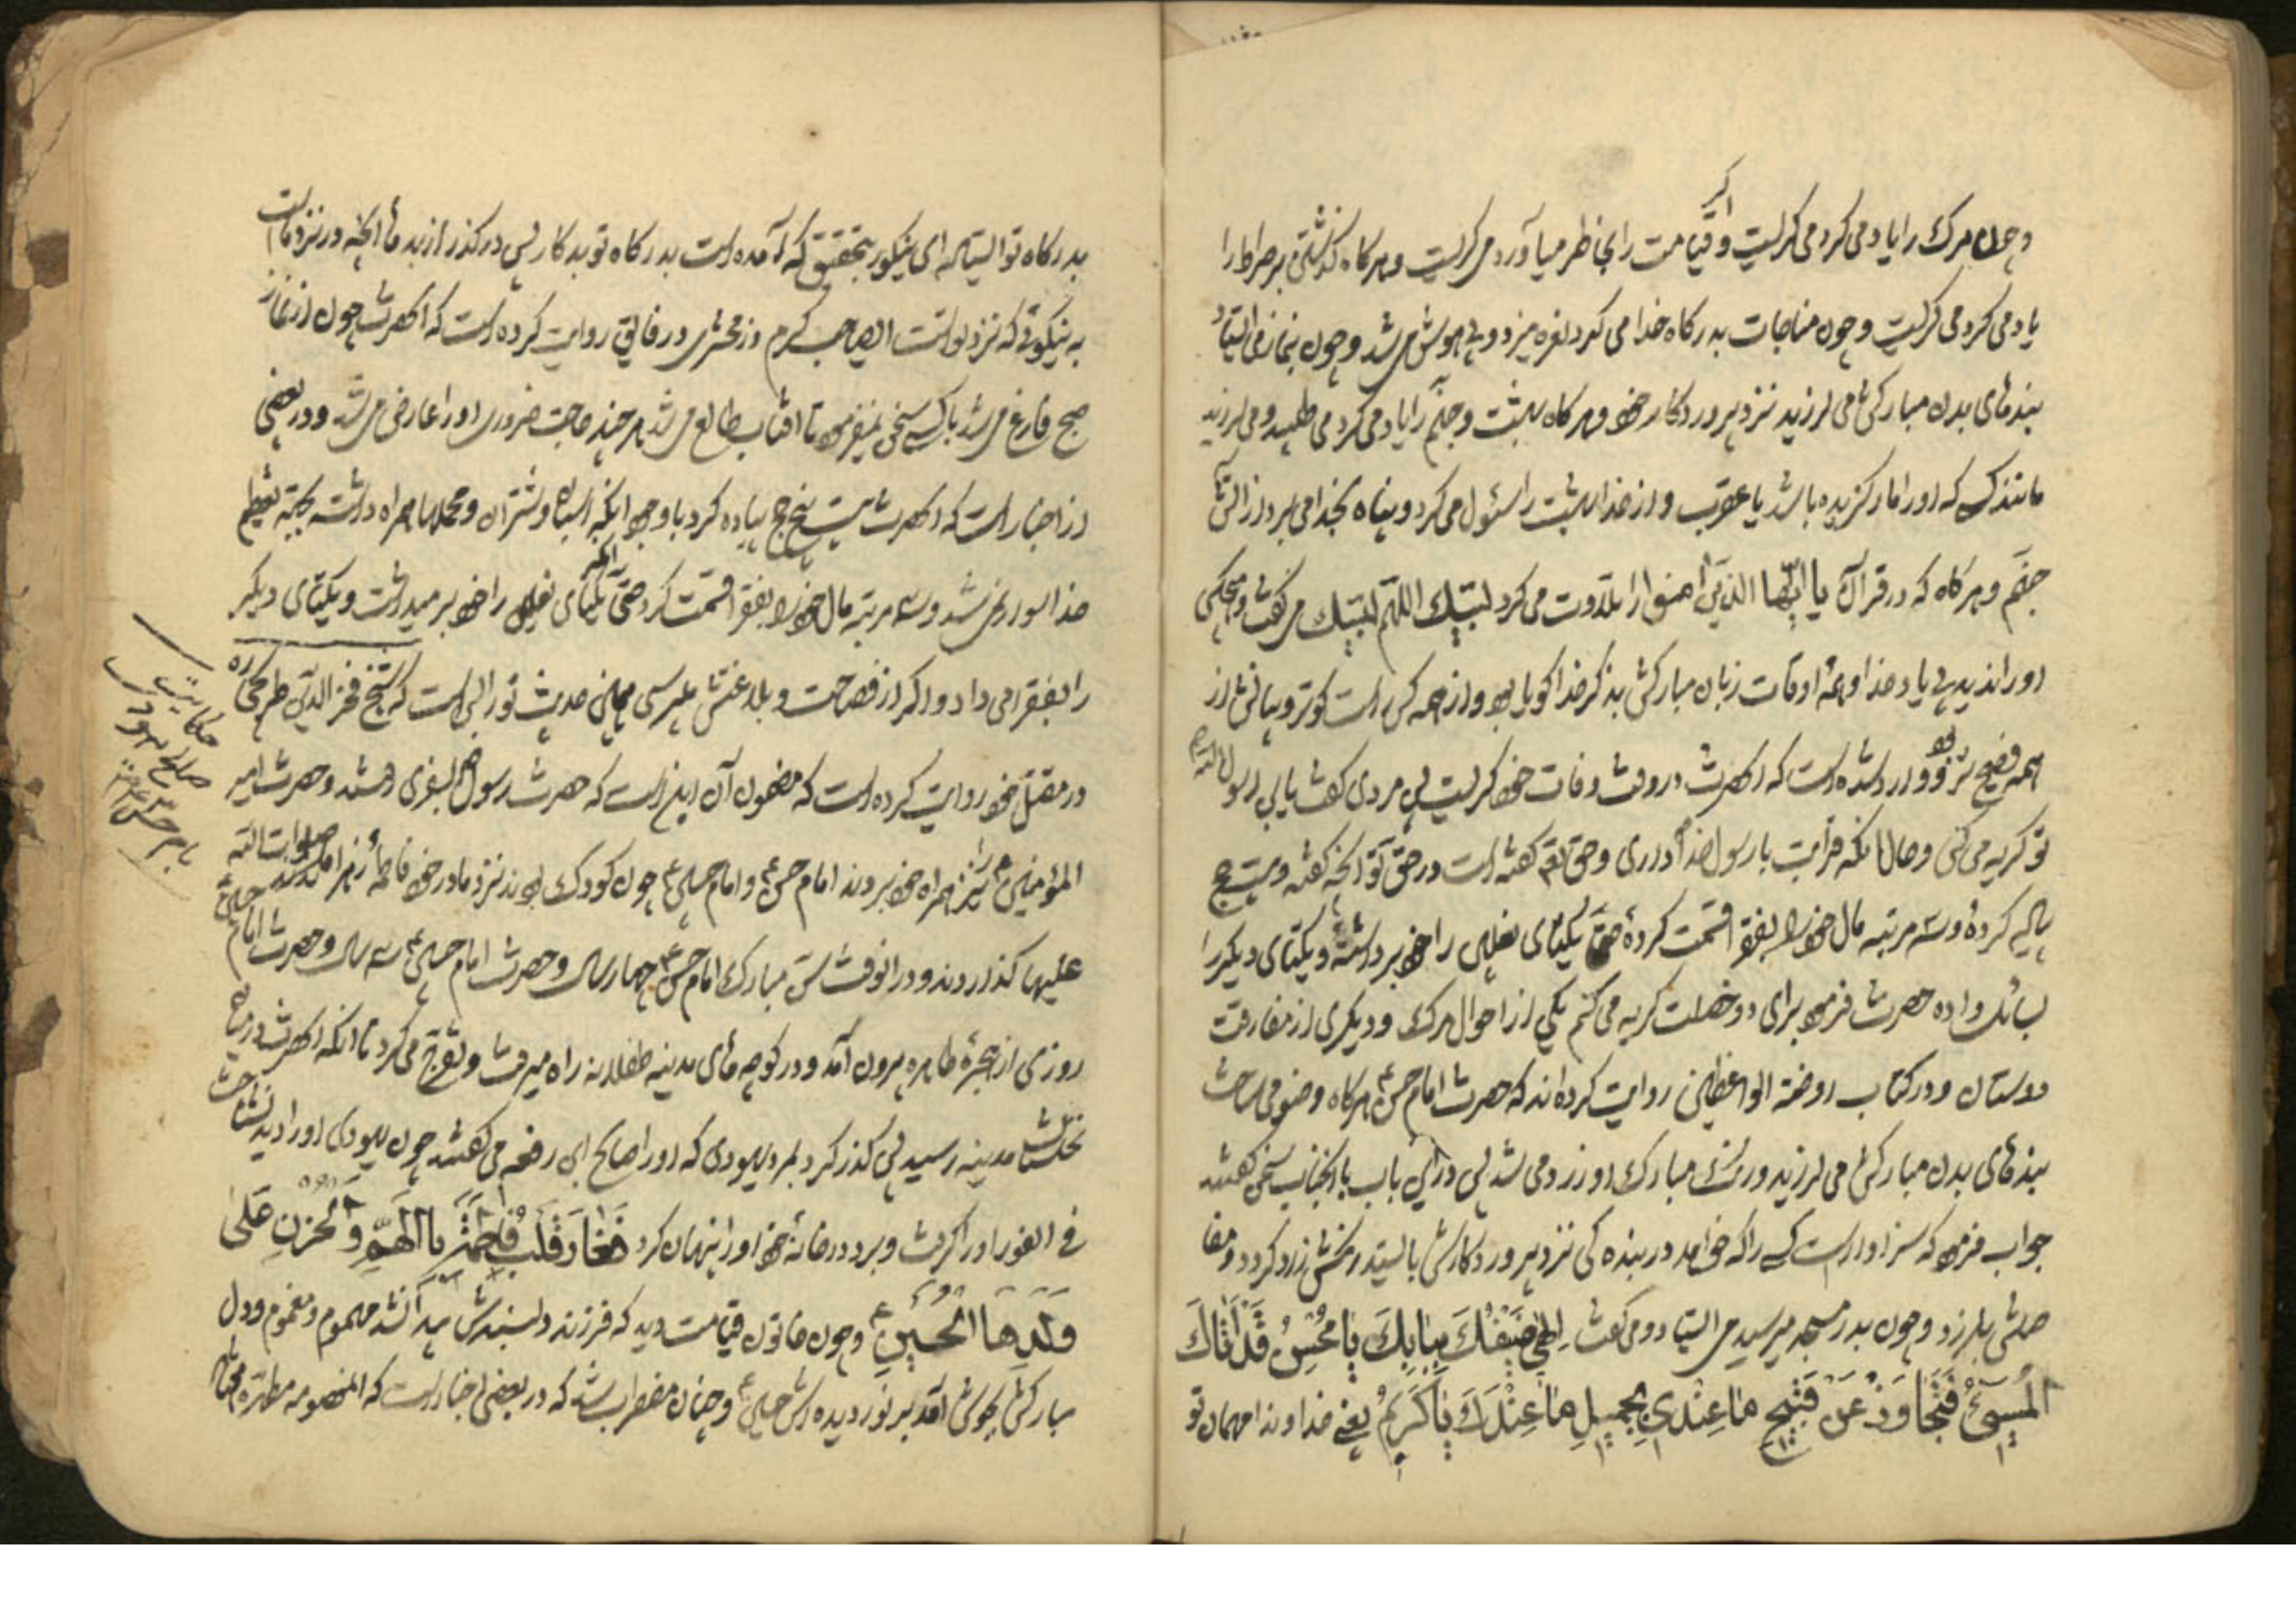 و چون مرک را یاد می کرد می کریست و اکر قیامت را بخاطر میآورد می کریست و هرکاه کذشتن بر صراط را
یاد می کرد می کریست و چون مناجات بدرکاه خدا می کرد نعره میزد و بی هوش می شد و چون بنماز می ایستاد
بندهای بدن مبارکش می لرزید نزد پروردکار خود و هرکاه بهشت و جهنم را یاد می کرد می طپید و می لرزید
مانند کسی که او را مار کزیده باشد یا عقرب و از خدا بهشت را سئول می کرد و پناه بخدا می برد از آتش
جهنم و هرکاه که در قرآن یا ایها الذین امنوا را تلاوت می کرد لبیک اللهم لبیک می کفت و هیچکس
او را ندید بی یاد خدا و همه اوقات زبان مبارکش بذکر خدا کویا بود و از همه کس راست کوتر و بیانش از
همه فصیح تر بود و وارد شده است که انحضرت در وقت وفات خود کریست پس مردی کفت یابن رسول الله
تو کریه می کنی و حال انکه قرابت با رسول خدا داری و حق تو کفته است در حق تو انچه کفته و بیست حج
پیاده کردهٔ و سه مرتبه مال خود را بفقرا قسمت کردهٔ حتی یکتای نعلین را خود برداشتهٔ و یکتای دیکر را
بسائل داده حضرت فرمود برای دو خصلت کریه می کنم یکی از احوال مرک و دیکری از مفارقت
دوستان و در کتاب روضة الواعظین روایت کرده اند که حضرت امام حسن ع هرکاه وضو می ساخت
بندهای بدن مبارکش می لرزید و رنک مبارک او زرد می شد پس در این باب با انجناب سخن کفتند
جواب فرمود که سزاوار است کسی را که خواهد در بنده کی نزد پروردکارش بایستد رنکش زرد کردد و مفا
صلش بلرزد و چون بدر مسجد میرسید می ایستاد و می کفت اِلهی ضَیْفُکَ بِبابِکَ یا مُحْسِنُ قَدْ اَتاکَ
الْمُسیٓئُ فَتَجاوَزْ عَنْ قَبیحِ ما عِنْدی بِجَمیلِ ما عِنْدَکَ یا کَریمُ یعنی خداوندا مهمان تو
بدرکاه تو ایستاده ای نیکوکار بتحقیق که آمده است بدرکاه تو بدکار پس درکذر از بدیها انچه در نزد ماست
به نیکوئی که نزد تو است ای صاحب کرم و زمخشری در فایق روایت کرده است که انحضرت چون از نماز
صبح فارغ می شد با کسی سخن نمیفرمود تا افتاب طالع می شد هر چند حاجت ضروری او را عارض می شد و در بعضی
از اخبار است که انحضرت بیست پنج حج پیاده کرد با وجود انکه اسبان و شتران و محملها همراه داشت بجهة تعظیم
خدا سوار نمی شد و سه مرتبه مال خود را بفقرا قسمت کرد حتی آنکه یکتای نعلین را خود برمیداشت و یکتای دیکر
را بفقرا می داد و اکر از فصاحت و بلاغتش پرسی همین حدیث تو را بس است که شیخ فخر الدین طریحی ره
در مقتل خود روایت کرده است که مضمون آن این است که حضرت رسول ص بسفری رفتند و حضرت امیر
المؤمنین ع را نیز همراه خود بردند امام حسن ع و امام حسین ع چون کودک بودند نزد مادر خود فاطمهٔ زهرا صلوات الله
علیها کذاردند و در انوقت سن مبارک امام حسن ع چهار سال و حضرت امام حسین ع سه سال و حضرت امام حسین ع
روزی از حجرهٔ طاهره بیرون آمد و در کوچه های مدینه طفلانه راه میرفت و تفرج می کرد تا انکه انحضرت در میان
نخلستان مدینه رسید پس کذر کرد بمرد یهودی که او را صالح ابن رقعه می کفتند چون یهودی او را دید بشناخت
فی الفور او را کرفت و برد در خانهٔ خود او را پنهان کرد فَغارَ قَلْبُ فاطِمَةَ بِالْهَمِّ وَ الْحُزْنِ عَلٰی
وَلَدِهَا الْحُسَیْنِ ع و چون خاتون قیامت دید که فرزند دلبندش پیدا نشد مهموم و مغموم و دل
مبارکش بجوش آمد بر نور دیده اش حسین ع و چنان مضطرب شد که در بعضی اخبار است که انمعصومه مطهره هفتاد
حکایت
صالح یهودی
با امام حسین ع